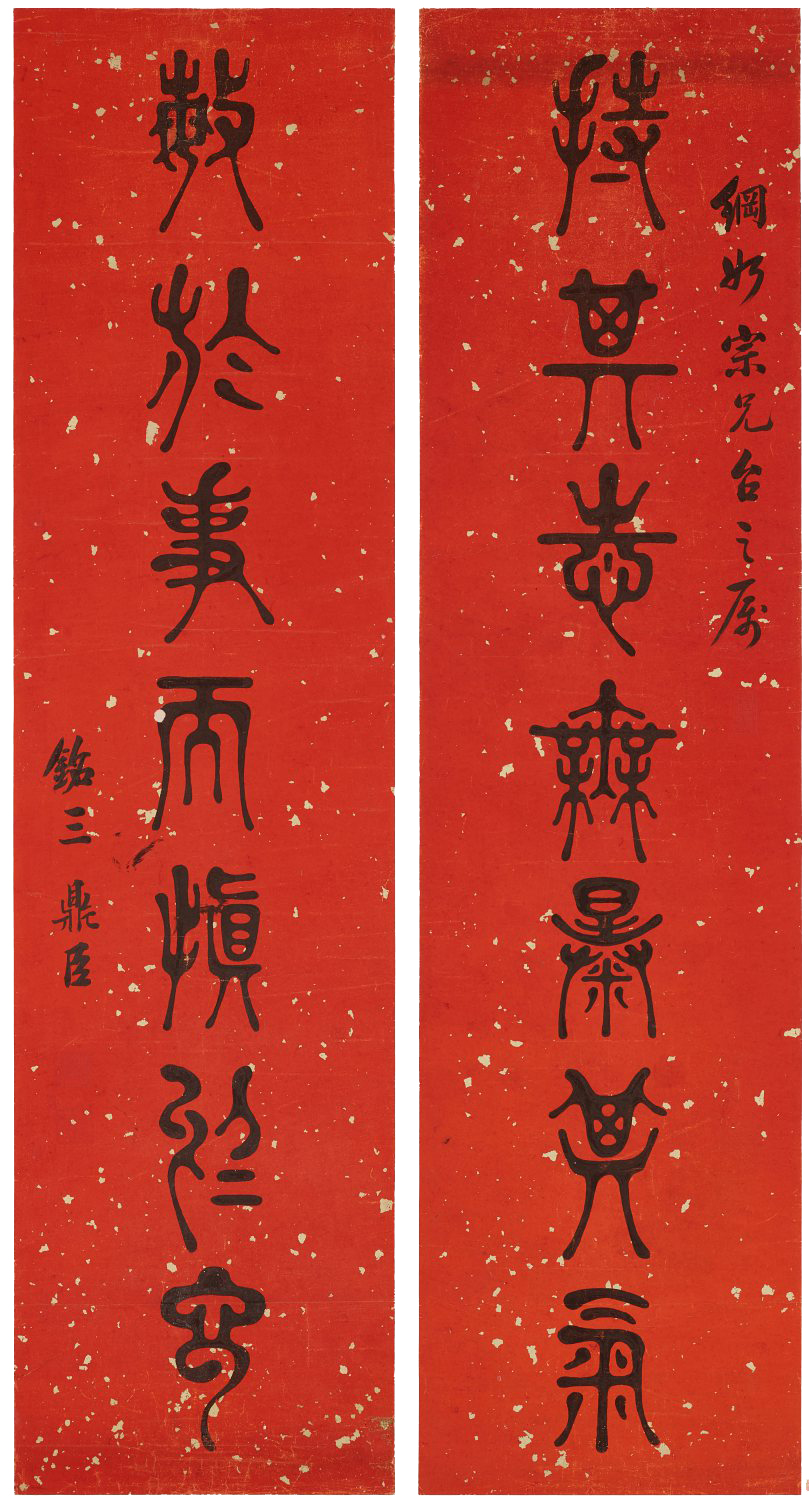 鋼如宗兄台之属
持其志無暴其氣
敏於事而慎於言
銘三 鼎臣